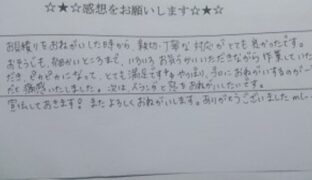 ☆★☆感想をお願いします☆★☆
お見積りをおねがいした時から、親切、丁寧な対応がとても良かったです。
おそうじも、細かいところまで、いろいろお気づかいいただきながら作業していた
だき、ピカピカになって、とても満足です。やはり、プロにおねがいするのが一
だと痛感いたしました。次は、ベランダと窓をおねがいしたいです。
宣伝しておきます！またよろしくおねがいします。ありがとうございました m(_ _)m